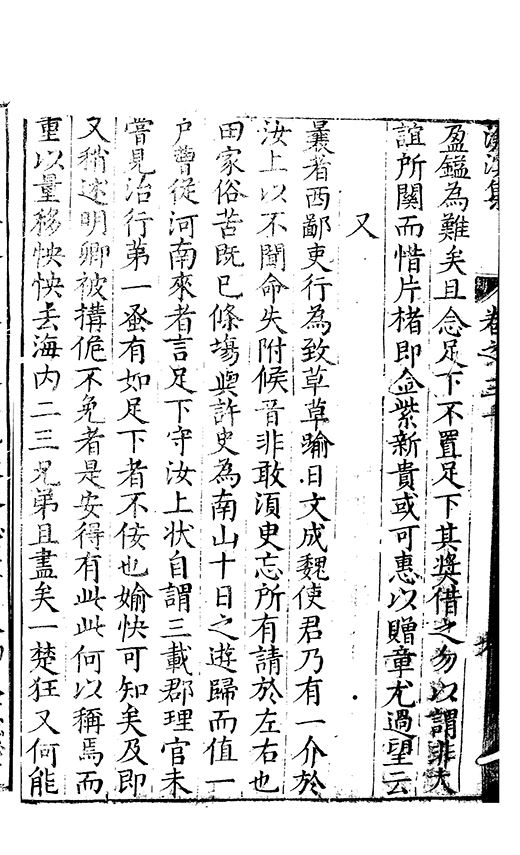 滄溟集 卷之三十
盈鎰為難矣且念足下不置足下其奬借之勿以謂非大
誼所關而惜片楮即金紫新貴或可惠以贈章尤過望云
又
曩者西鄙吏行為致草草踰日文成魏使君乃有一介於
汝上以不聞命失附候音非敢須臾忘所有請於左右也
田家俗苦既已條塲與許史為南山十日之遊歸而值一
户曹從河南來者言足下守汝上状自謂三載郡理官未
嘗見治行第一蚤有如足下者不佞也媮快可知矣及即
又稍述明卿被搆佹不免者是安得有此此何以稱焉而
重以量移怏怏去海内二三兄弟且盡矣一楚狂又何能